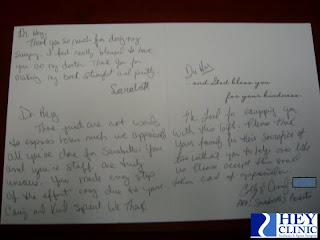 Dr. Hey,
Thank you so much for doing my
surgery. I feel really blessed to have
you as my doctor. Thank you for
making my back straight and pretty.
Dr. Hey
There just are not words
to express how much we appreciate
all you've done for
You and your staff are truly
You made every step
of the effort easy due to your
Caring and Kind Spirit. We Thank
Dr. Hey
and God bless you
for your kindness.
the Lord for equipping you
with this gift. Please thank
your family for their sacrifice of
time without you to help ones like
us. Please accept this small
token of appreciation.
HEY
CLINIC